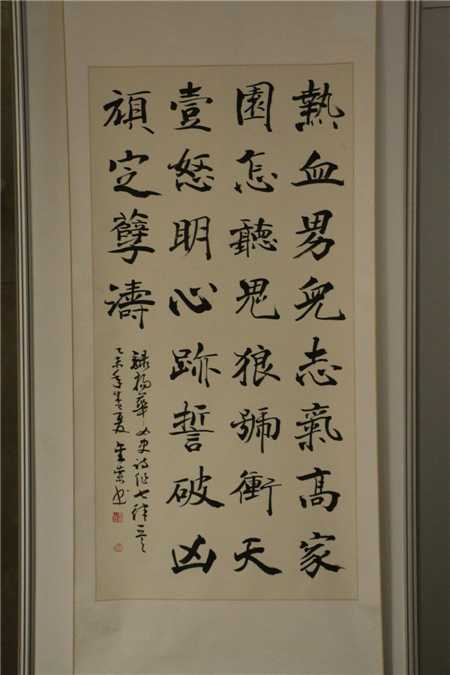 熱血男兒志氣高家
園怎聽鬼狼號衝天
壹怒明心跡誓破凶
頑定孽濤
録楊華女史詩作七律
乙未年孟夏